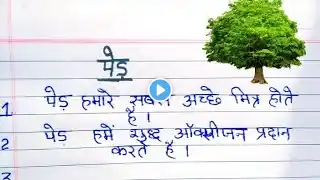 पेड़
1 पेड़ हमारे सबसे अच्छे मित्र होते
हैं ।
2 पेड़ हमें शुद्ध ऑक्सीजन प्रदान
करते हैं ।
3